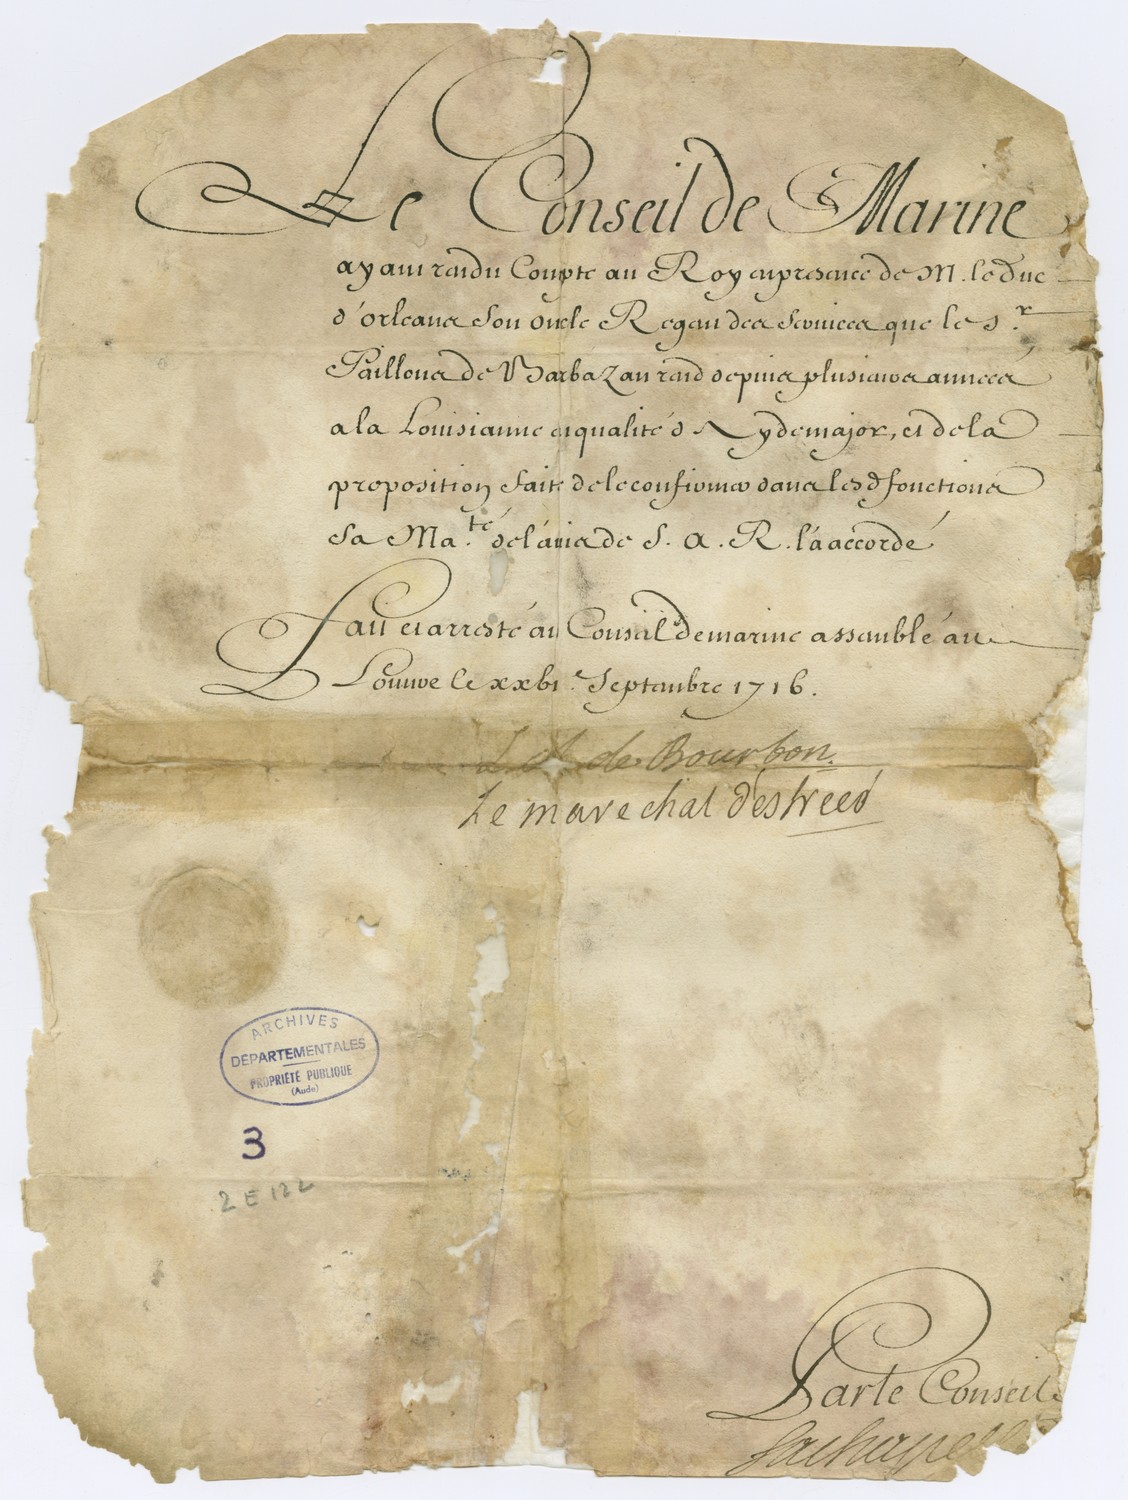 Le Conseil de Marine
ayant rendu Compte au Roy en presence de M. le Duc
d'orleans son oncle Regent des services que le S.r
Paillous de Barbazan rend depuis plusieurs années
a la Louisianne en qualité d'Aydemajor, et de la
proposition faite de le confirmer dans lesd fonctions
Sa Ma.té de l'avis de S. A. R. l'a accordé
Fait et arresté au Conseil de marine assemblé au
Louvre le xxbi. Septembre 1716.
L A de Bourbon.
Le marechal d'estreés
ARCHIVES
DEPARTEMENTALES
PROPRIÉTÉ PUBLIQUE
(Aude)
3
2 E 122
Par le Conseil